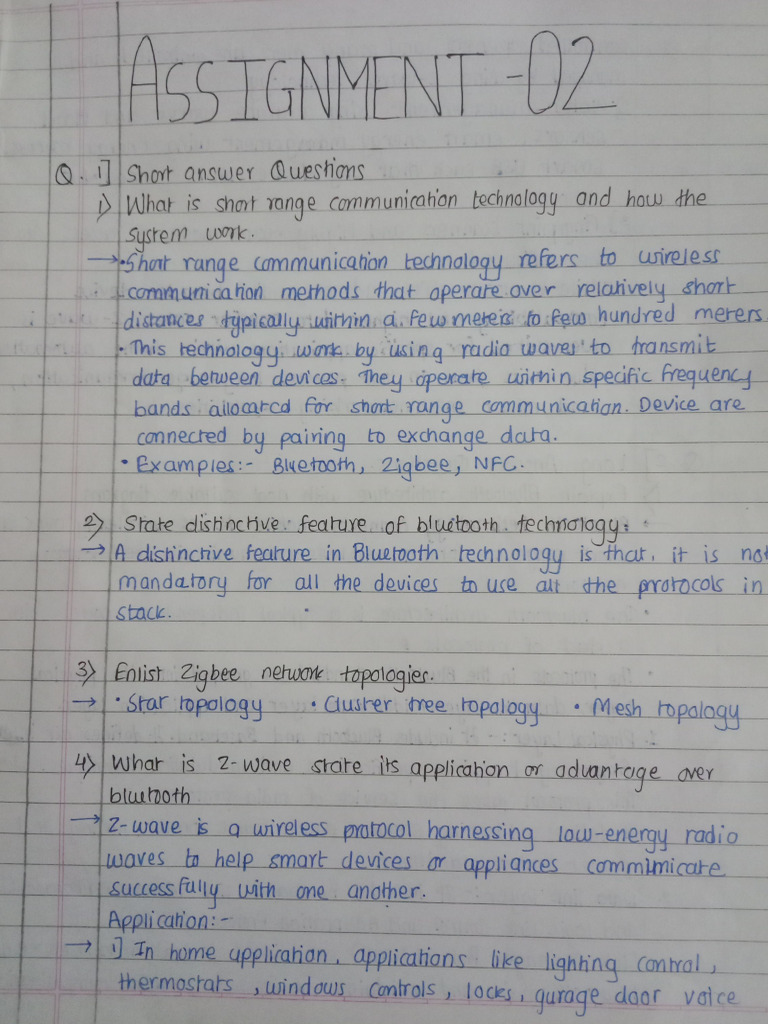 ASSIGNMENT -02
Q. 1] Short answer Questions
1) What is short range communication technology and how the
system work.
→ • Short range communication technology refers to wireless
communication methods that operate over relatively short
distances typically within a few meters to few hundred meters
• This technology work by using radio waves to transmit
data between devices. They operate within specific frequency
bands allocated for short range communication. Device are
connected by pairing to exchange data.
• Examples:- Bluetooth, Zigbee, NFC.
2) State distinctive feature of bluetooth technology:
→ A distinctive feature in Bluetooth technology is that, it is not
mandatory for all the devices to use all the protocols in
stack.
3) Enlist Zigbee network topologies.
→ • Star topology • Cluster tree topology • Mesh topology
4) What is Z-wave state its application or advantage over
blutooth
→ Z-wave is a wireless protocol harnessing low-energy radio
waves to help smart devices or appliances commimicate
successfully with one another.
Application:-
→ 1] In home application, applications like lighting control,
thermostats, windows controls, locks, gurage door voice